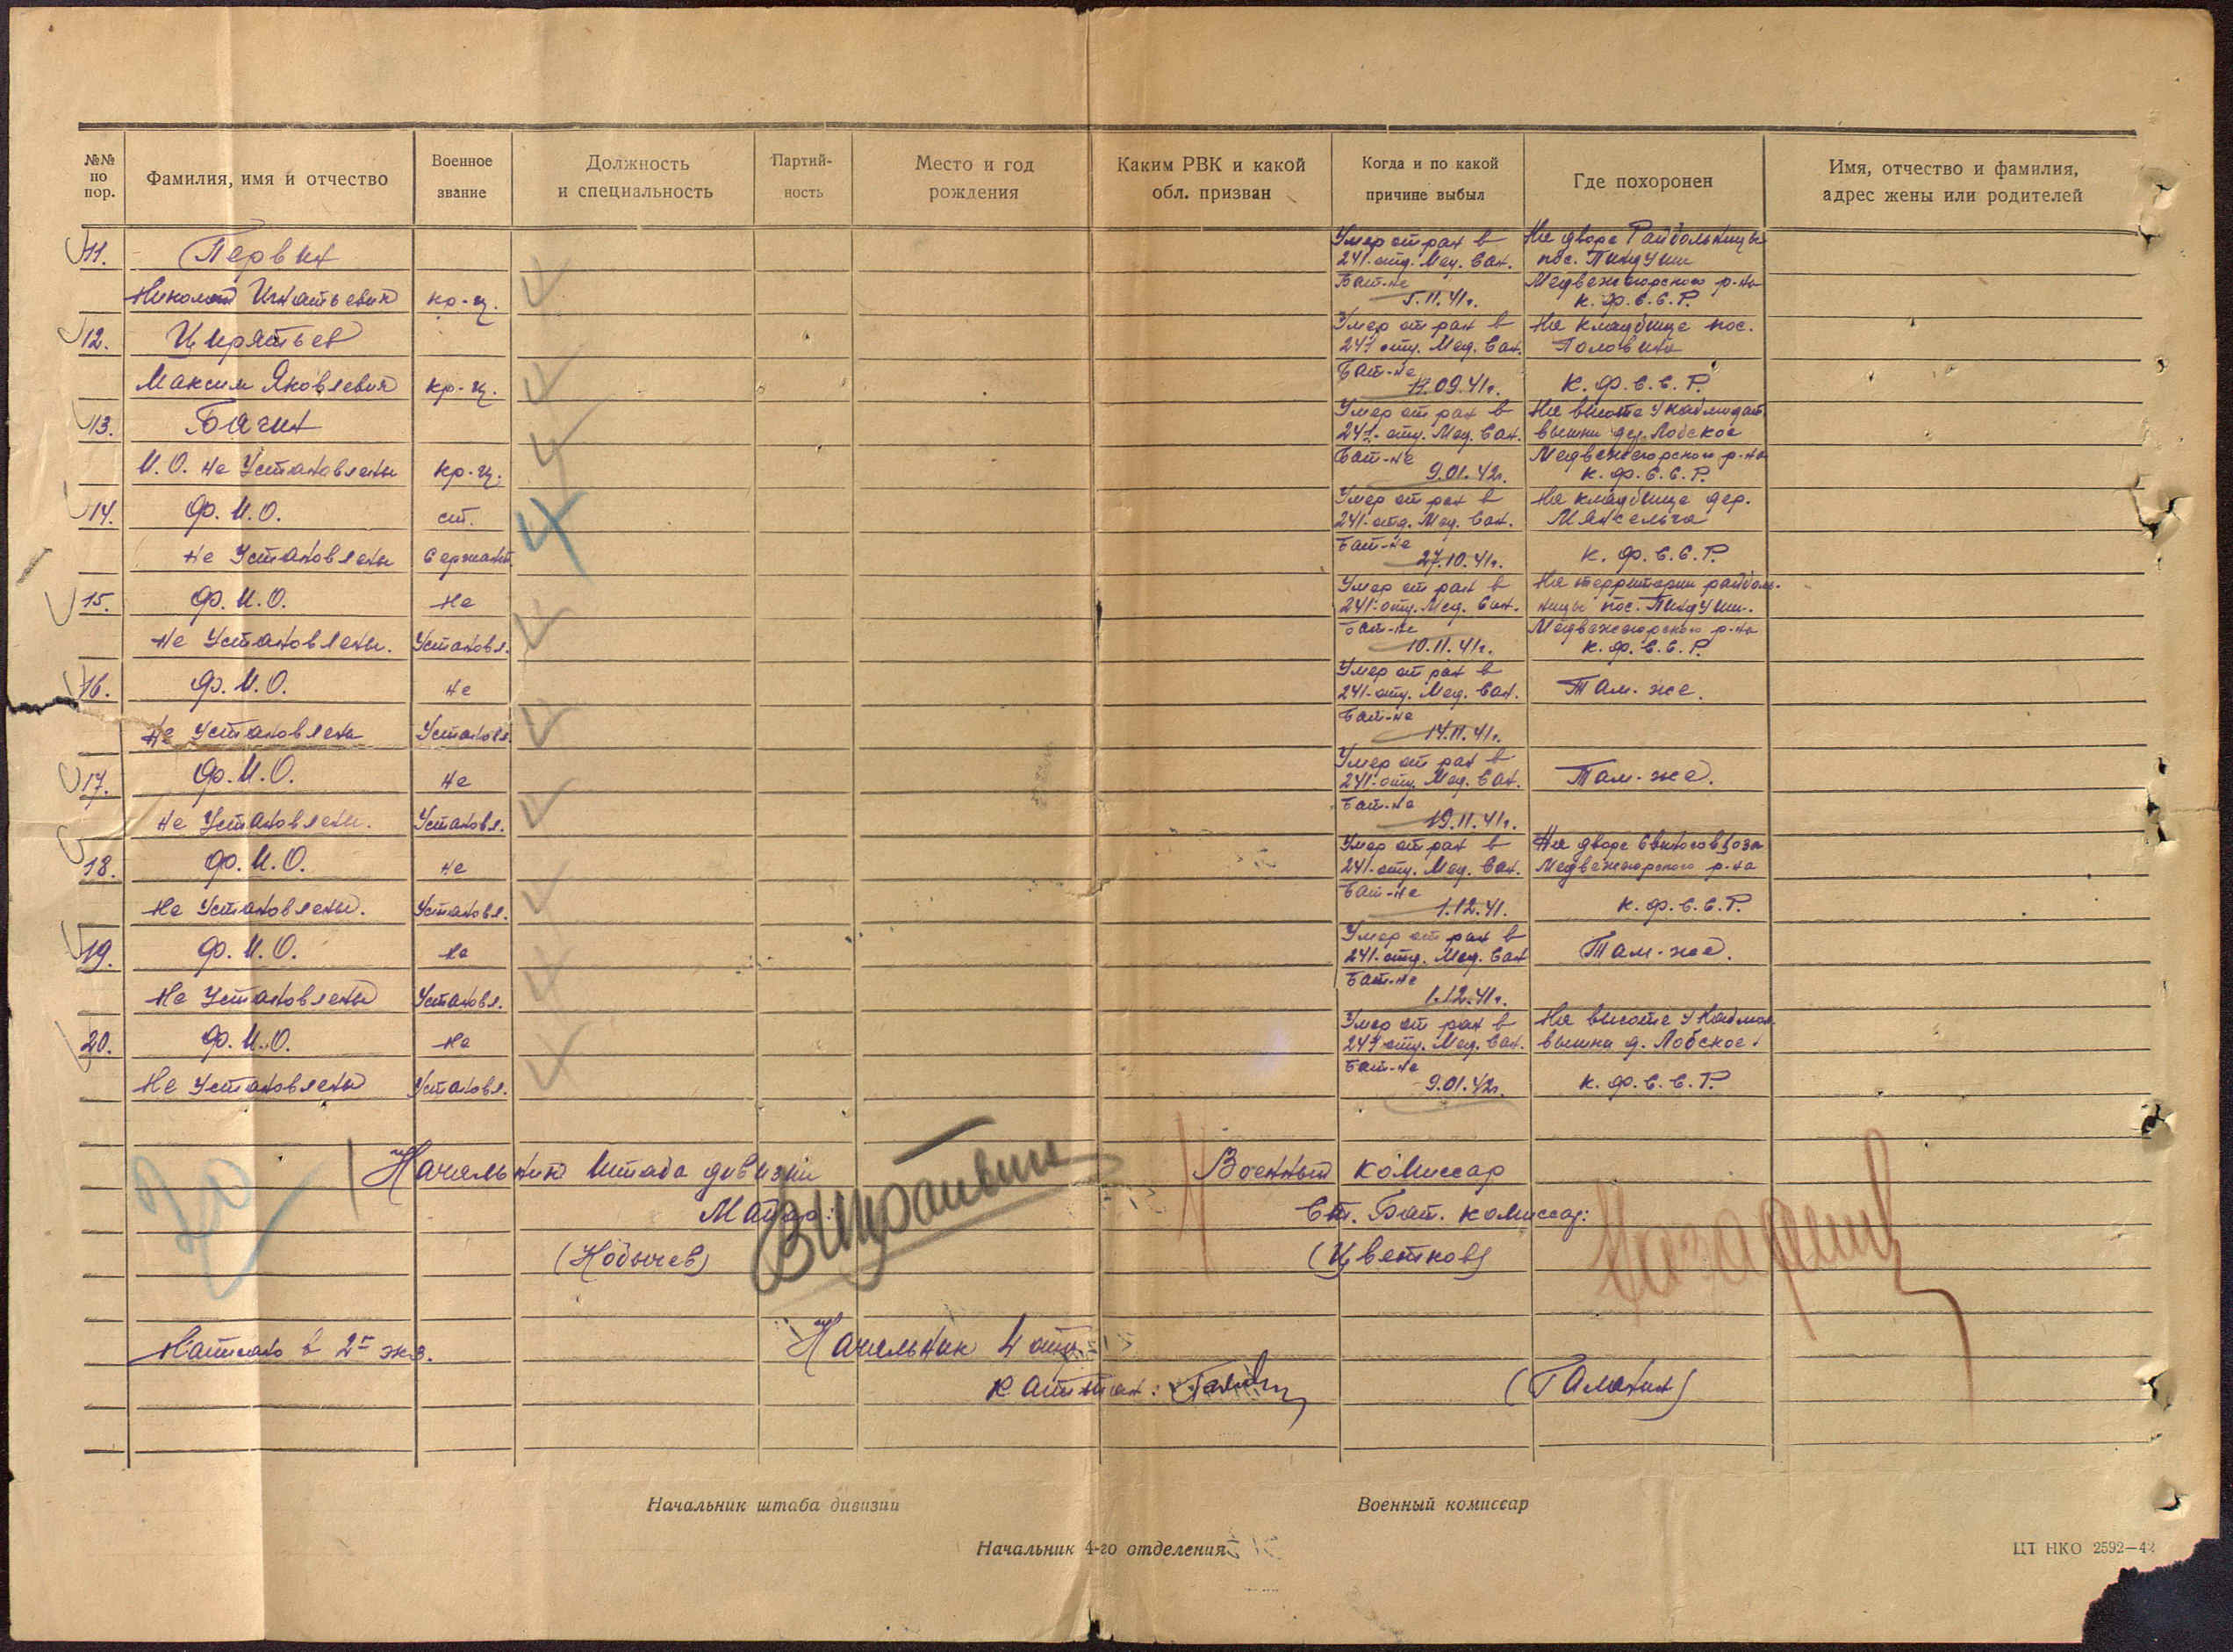 №№ по пор. Фамилия, имя и отчество Военное звание Должность и специальность Партий-ность Место и год рождения Каким РВК и какой обл. призван Когда и по какой причине выбыл Где похоронен Имя, отчество и фамилия, адрес жены или родителей
11. Первых Умер от ран в На дворе Райбольницы
241-отд. Мед. Сан. пос. Пиндуши
Николай Игнатьевич кр-ц. Бат-не Медвежегорского р-на
5.11.41г. К.Ф.С.С.Р.
12. Цирятьев Умер от ран в На кладбище пос.
241 отд. Мед. Сан. Головина
Максим Яковлевич кр-ц. Бат-не
17.09.41г. К.Ф.С.С.Р.
13. Бачин Умер от ран в На высоте у наблюдат.
241-отд. Мед. Сан. вышки дер. Лобское
И.О. не Установлены кр-ц. Бат-не Медвежегорского р-на
9.01.42г. К.Ф.С.С.Р.
14. Ф.И.О. ст. Умер от ран в На кладбище дер.
241-отд. Мед. Сан. Мянсельга
не Установлены Сержант Бат-не
27.10.41г. К.Ф.С.С.Р.
15. Ф.И.О. Не Умер от ран в На территории райболь-
241-отд. Мед. Сан. ницы пос. Пиндуши.
не Установлены. Установл. Бат-не Медвежегорского р-на
10.11.41г. К.Ф.С.С.Р.
16. Ф.И.О. не Умер от ран в
241-отд. Мед. Сан. Там-же.
не Установлены Установл. Бат-не
14.11.41г.
17. Ф.И.О. не Умер от ран в
241-отд. Мед. Сан. Там-же.
не Установлены. Установл. Бат-не
19.11.41г.
18. Ф.И.О. не Умер от ран в На дворе Свиносовхоза
241-отд. Мед. Сан. Медвежегорского р-на
Не Установлены. Установл. Бат-не
1.12.41. К.Ф.С.С.Р.
19. Ф.И.О. Не Умер от ран в
241-отд. Мед. Сан Там-же.
Не Установлены Установл. Бат-не
1.12.41г.
20. Ф.И.О. Не Умер от ран в На высоте у Наблюд.
241 отд. Мед. Сан. вышки д. Лобское.
Не Установлены Установл. Бат-не
9.01.42г. К.Ф.С.С.Р.
Начальник Штаба дивизии Военный комиссар
Майор: Ст. Бат. комиссар:
(Цветков)
Начальник 4 отд.
Написано в 2х экз.
Капитан: (Галанин)
Начальник штаба дивизии Военный комиссар
Начальник 4-го отделения
ЦТ НКО 2592—42